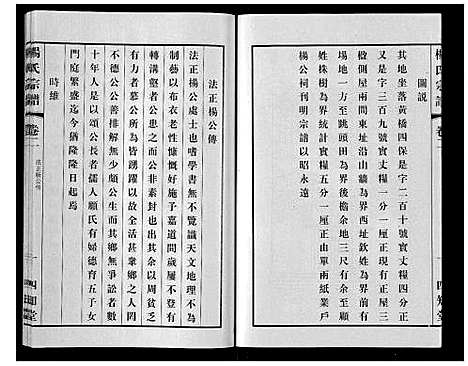 楊氏宗譜
卷二
四知堂
圖説
其地坐落黃橋四保是字二百十號實丈糧四分正
又是字三百九號實丈糧一分一厘正現有正屋三
楹側屋兩間東址沿山牆為界西址欽姓為界前有
場地一方至跳頭田為界後檐余地三尺有例右有
姓株樹為界統計實糧五分一厘正由單兩紙業戶
楊公祠刊明宗譜以昭永遠
法正楊公傳
法正楊公處士也嗜學書無不覽識天文地理不為
制藝以布衣老性慷慨好施予嘉道間歲屢不登有
轉溝壑者公患之而公非素封也出其余以周貧乏
有力者慕公所為皆踴躍以故全活甚衆鄉之人罔
不德公公善排解無少頗公生而其鄉無爭訟者數
十年人是以頌公長者儒人顧氏有婦德育五子女
門庭繁盛迄今猶隆隆日起焉
時維
楊氏宗譜
卷二
法正楊公傳
四知堂